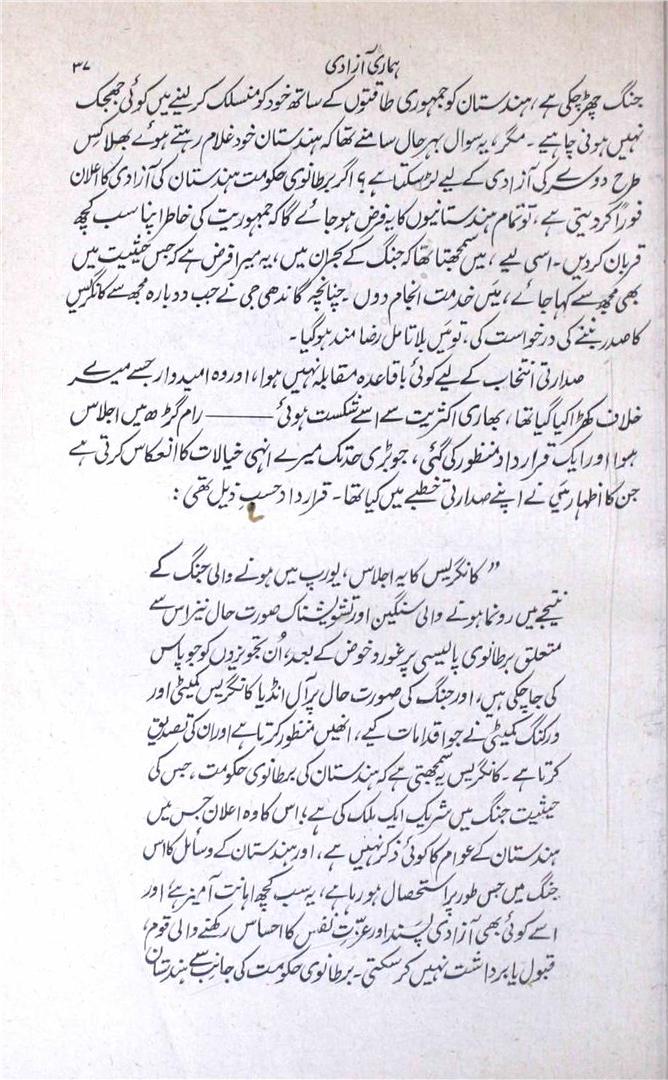 ہماری آزادی ۳۷
جنگ چھڑ چکی ہے، ہندستان کو جمہوری طاقتوں کے ساتھ خود کو منسلک کر لینے میں کوئی جھجک
نہیں ہونی چاہیے۔ مگر، یہ سوال بہر حال سامنے تھا کہ ہندستان خود غلام رہتے ہوئے بھلا کس
طرح دوسرے کی آزادی کے لیے لڑ سکتا ہے؟ اگر برطانوی حکومت ہندستان کی آزادی کا اعلان
فوراً کر دیتی ہے، تو تمام ہندستانیوں کا یہ فرض ہو جائے گا کہ جمہوریت کی خاطر اپنا سب کچھ
قربان کر دیں۔ اسی لیے، میں سمجھتا تھا کہ جنگ کے بحران میں، یہ میرا فرض ہے کہ جس حیثیت میں
بھی مجھ سے کہا جائے، میں خدمت انجام دوں۔ چنانچہ گاندھی جی نے جب دوبارہ مجھ سے کانگریس
کا صدر بننے کی درخواست کی، تو میں بلا تامل رضا مند ہو گیا۔
صدارتی انتخاب کے لیے کوئی باقاعدہ مقابلہ نہیں ہوا، اور وہ امیدوار جسے میرے
خلاف کھڑا کیا گیا تھا، بھاری اکثریت سے اسے شکست ہوئی ——— رام گڑھ میں اجلاس
ہوا اور ایک قرارداد منظور کی گئی، جو بڑی حد تک میرے انہی خیالات کا انعکاس کرتی ہے
جن کا اظہار میں نے اپنے صدارتی خطبے میں کیا تھا۔ قرارداد حسبِ ذیل تھی:
”کانگریس کا یہ اجلاس، یورپ میں ہونے والی جنگ کے
نتیجے میں رونما ہونے والی سنگین اور تشویشناک صورت حال نیز اس سے
متعلق برطانوی پالیسی پر غور و خوض کے بعد، اُن تجویزوں کو جو پاس
کی جا چکی ہیں، اور جنگ کی صورت حال پر آل انڈیا کانگریس کمیٹی اور
ورکنگ کمیٹی نے جو اقدامات کیے، انھیں منظور کرتا ہے اور ان کی تصدیق
کرتا ہے۔ کانگریس یہ سمجھتی ہے کہ ہندستان کی برطانوی حکومت، جس کی
حیثیت جنگ میں شریک ایک ملک کی ہے؛ اس کا وہ اعلان جس میں
ہندستان کے عوام کا کوئی ذکر نہیں ہے، اور ہندستان کے وسائل کا اس
جنگ میں جس طور پر استحصال ہو رہا ہے، یہ سب کچھ اہانت آمیز ہے؛ اور
اسے کوئی بھی آزادی پسند اور عزّتِ نفس کا احساس رکھنے والی قوم،
قبول یا برداشت نہیں کر سکتی۔ برطانوی حکومت کی جانب سے ہندستان